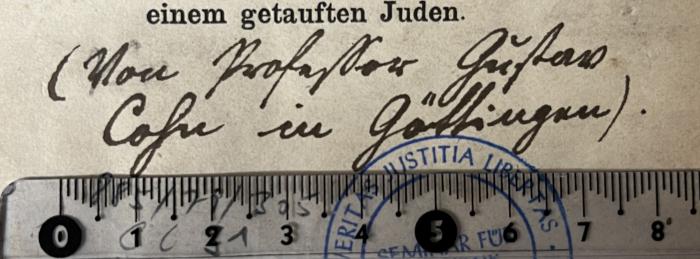 einem getauften Juden.
(Von Professor Gustav
Cohn in Göttingen).
VERITAS JUSTITIA LIBERTAS
SEMINAR FÜR
0 1 2 3 4 5 6 7 8